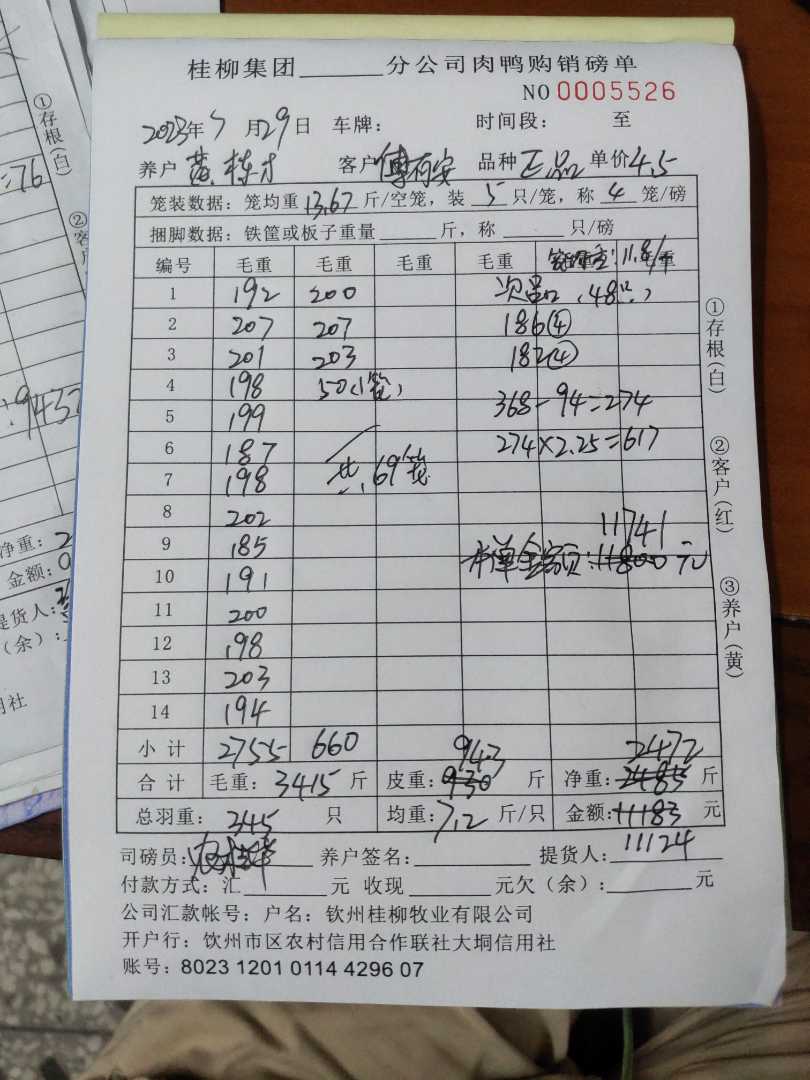 桂柳集团______分公司肉鸭购销磅单
NO 0005526
2023年7月29日 车牌: 时间段: 至
养户 黄栋才 客户 傅有安 品种 正品 单价4.5
笼装数据: 笼均重 13.67 斤/空笼, 装 5 只/笼, 称 4 笼/磅
捆脚数据: 铁筐或板子重量______斤, 称______只/磅
编号 毛重 毛重 毛重 毛重 11.8/
1 192 200 次品 (48只)
2 207 207 186④
3 201 203 182④
4 198 50(1笼)
368-94=274
5 199
274×2.25=617
6 187
7 198 共69笼
8 202
11741
9 185 本单金额:11800元
10 191
11 200
12 198
13 203
14 194
小计 2755 660 943 2472
合计 毛重: 3415 斤 皮重: 930 斤 净重: 2485 斤
总羽重: 345 只 均重: 7.2 斤/只 金额: 11183 元
11124
司磅员: 养户签名: 提货人:
付款方式: 汇______元 收现______元欠(余):______元
公司汇款帐号: 户名: 钦州桂柳牧业有限公司
开户行: 饮州市区农村信用合作联社大垌信用社
账号: 8023 1201 0114 4296 07
①存根(白)
②客户(红)
③养户(黄)
①存根(白)
=76
净重: 2
金额:
提货人:
(余):
用社